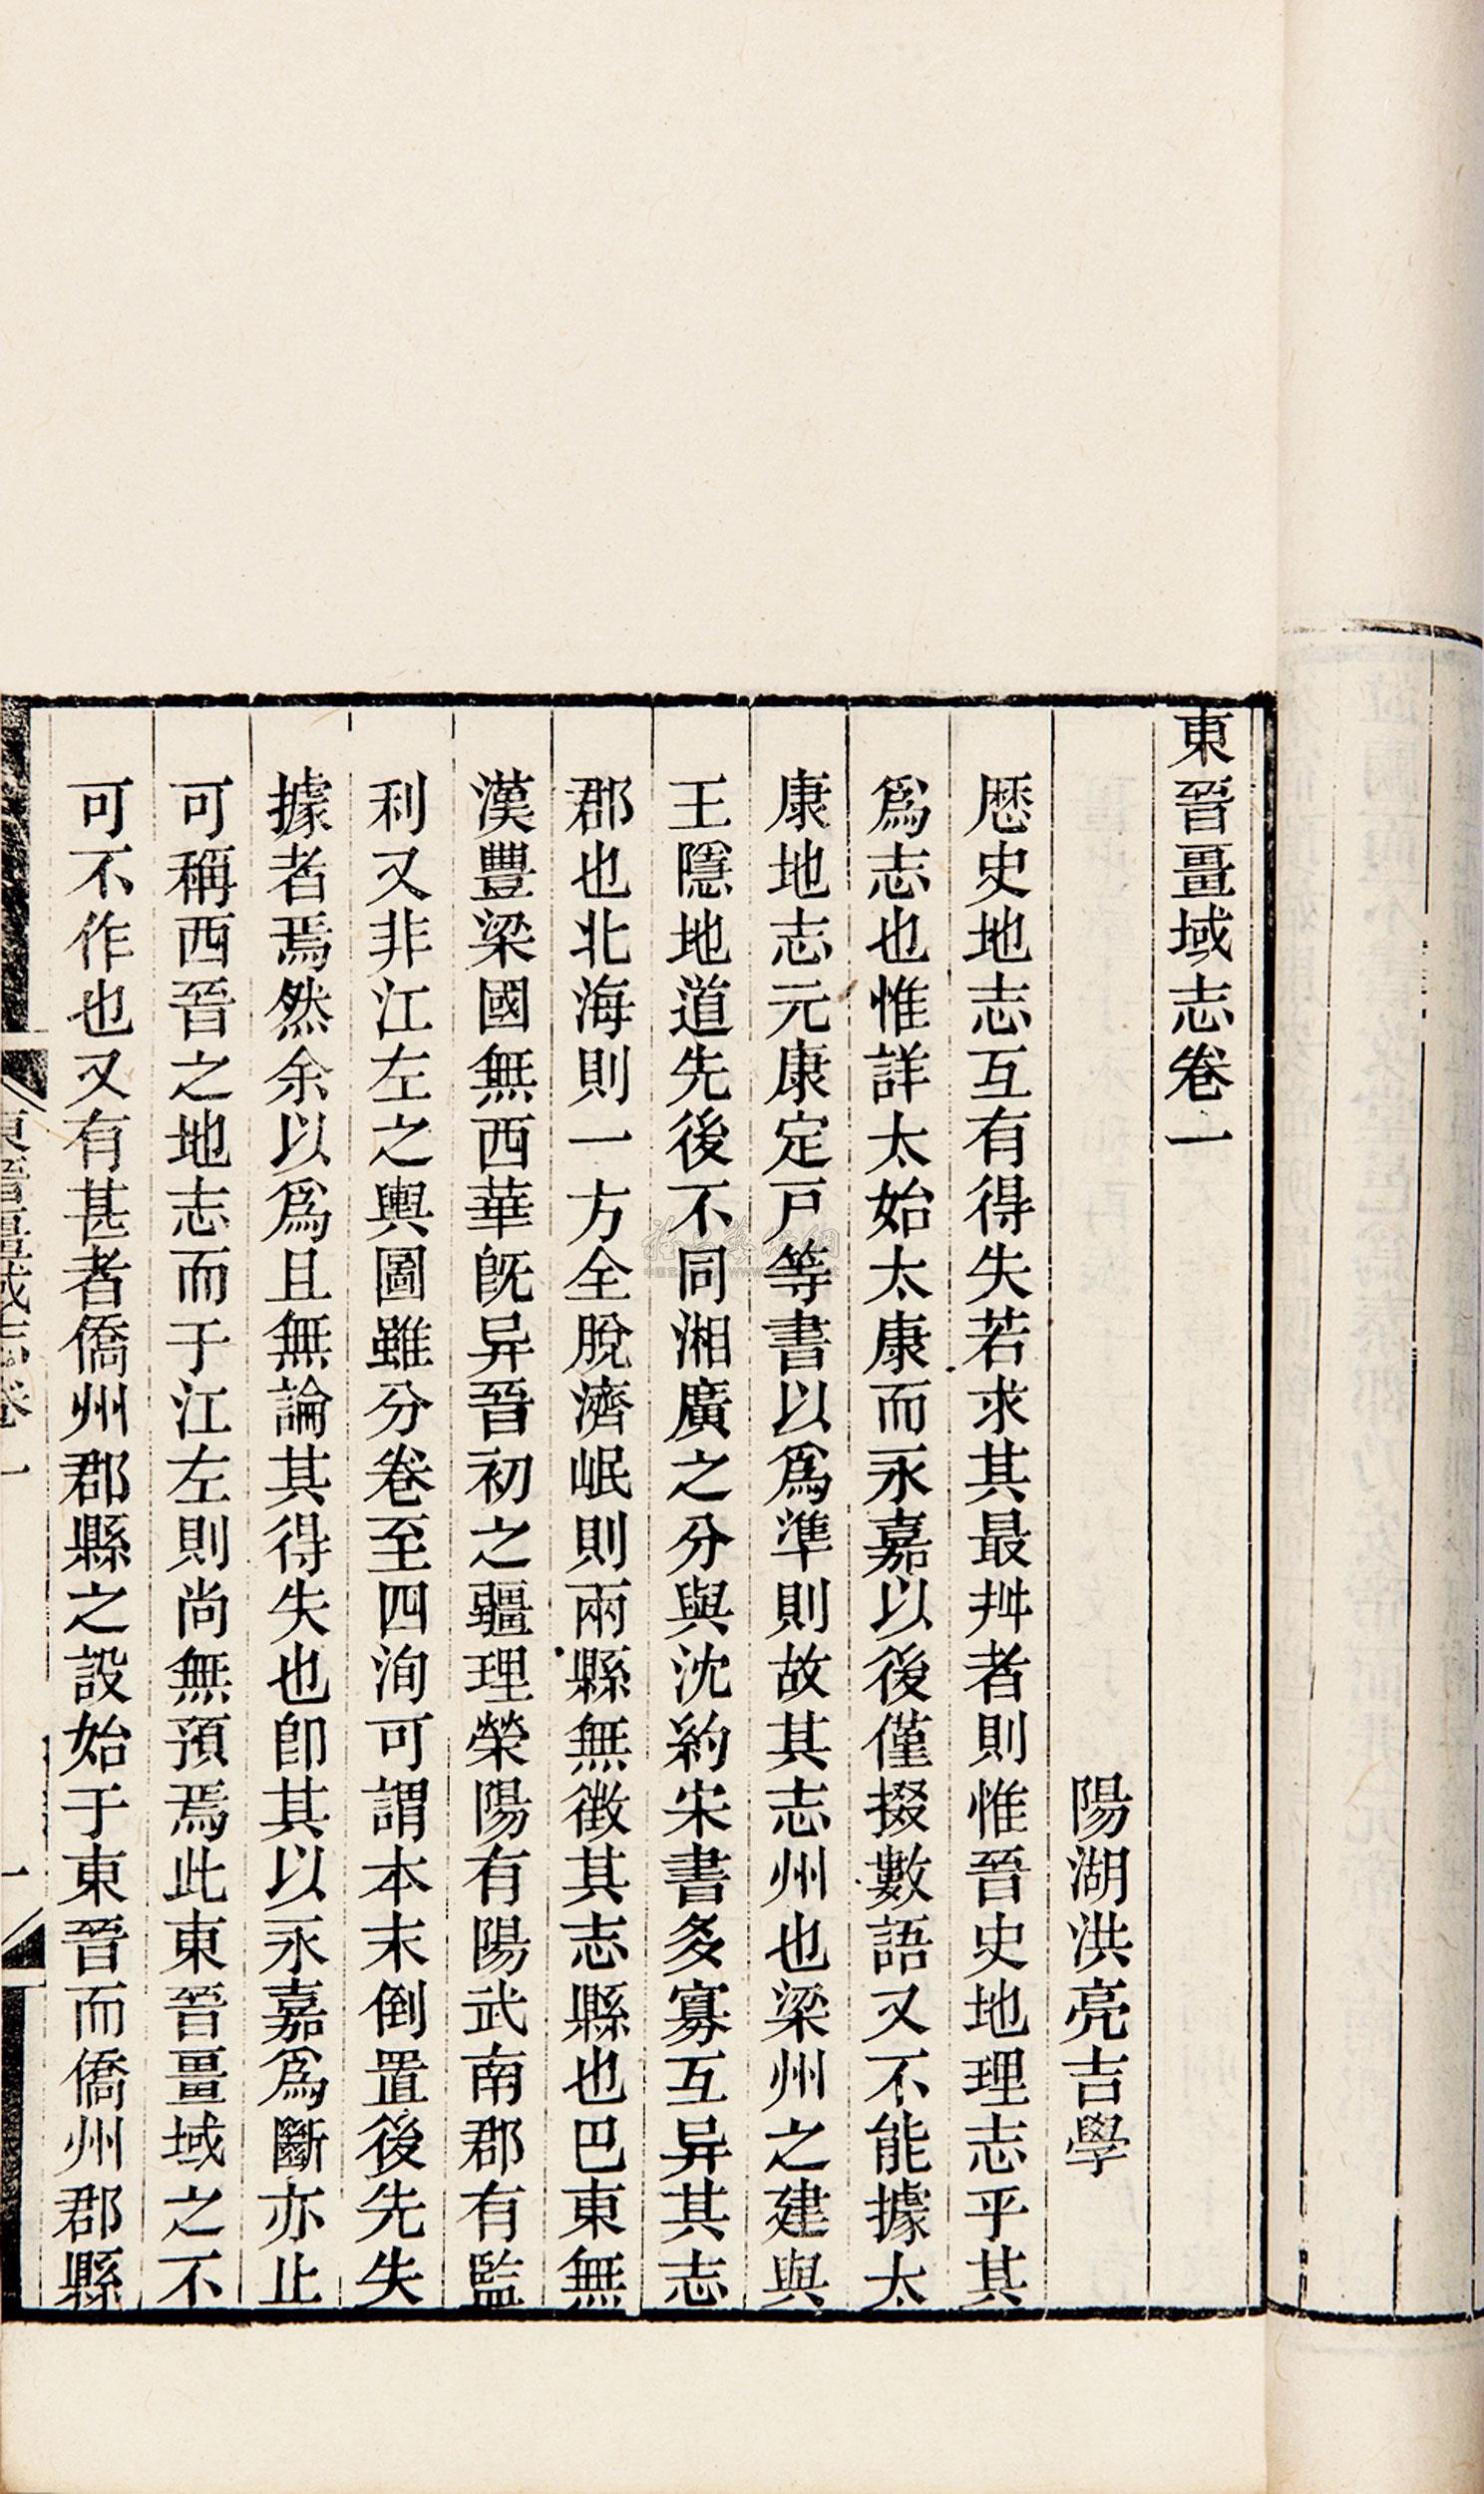 東晉畺域志卷一
陽湖洪亮吉學
歷史地志互有得失若求其最舛者則惟晉史地理志乎其
爲志也惟詳太始太康而永嘉以後僅掇數語又不能據太
康地志元康定戸等書以爲準則故其志州也梁州之建與
王隱地道先後不同湘廣之分與沈約宋書多寡互异其志
郡也北海則一方全脫濟岷則兩縣無徵其志縣也巴東無
漢豐梁國無西華旣异晉初之疆理滎陽有陽武南郡有監
利又非江左之輿圖雖分卷至四洵可謂本末倒置後先失
據者焉然余以爲且無論其得失也卽其以永嘉爲斷亦止
可稱西晉之地志而于江左則尚無預焉此東晉畺域之不
可不作也又有甚者僑州郡縣之設始于東晉而僑州郡縣
東晉畺域志卷一
一